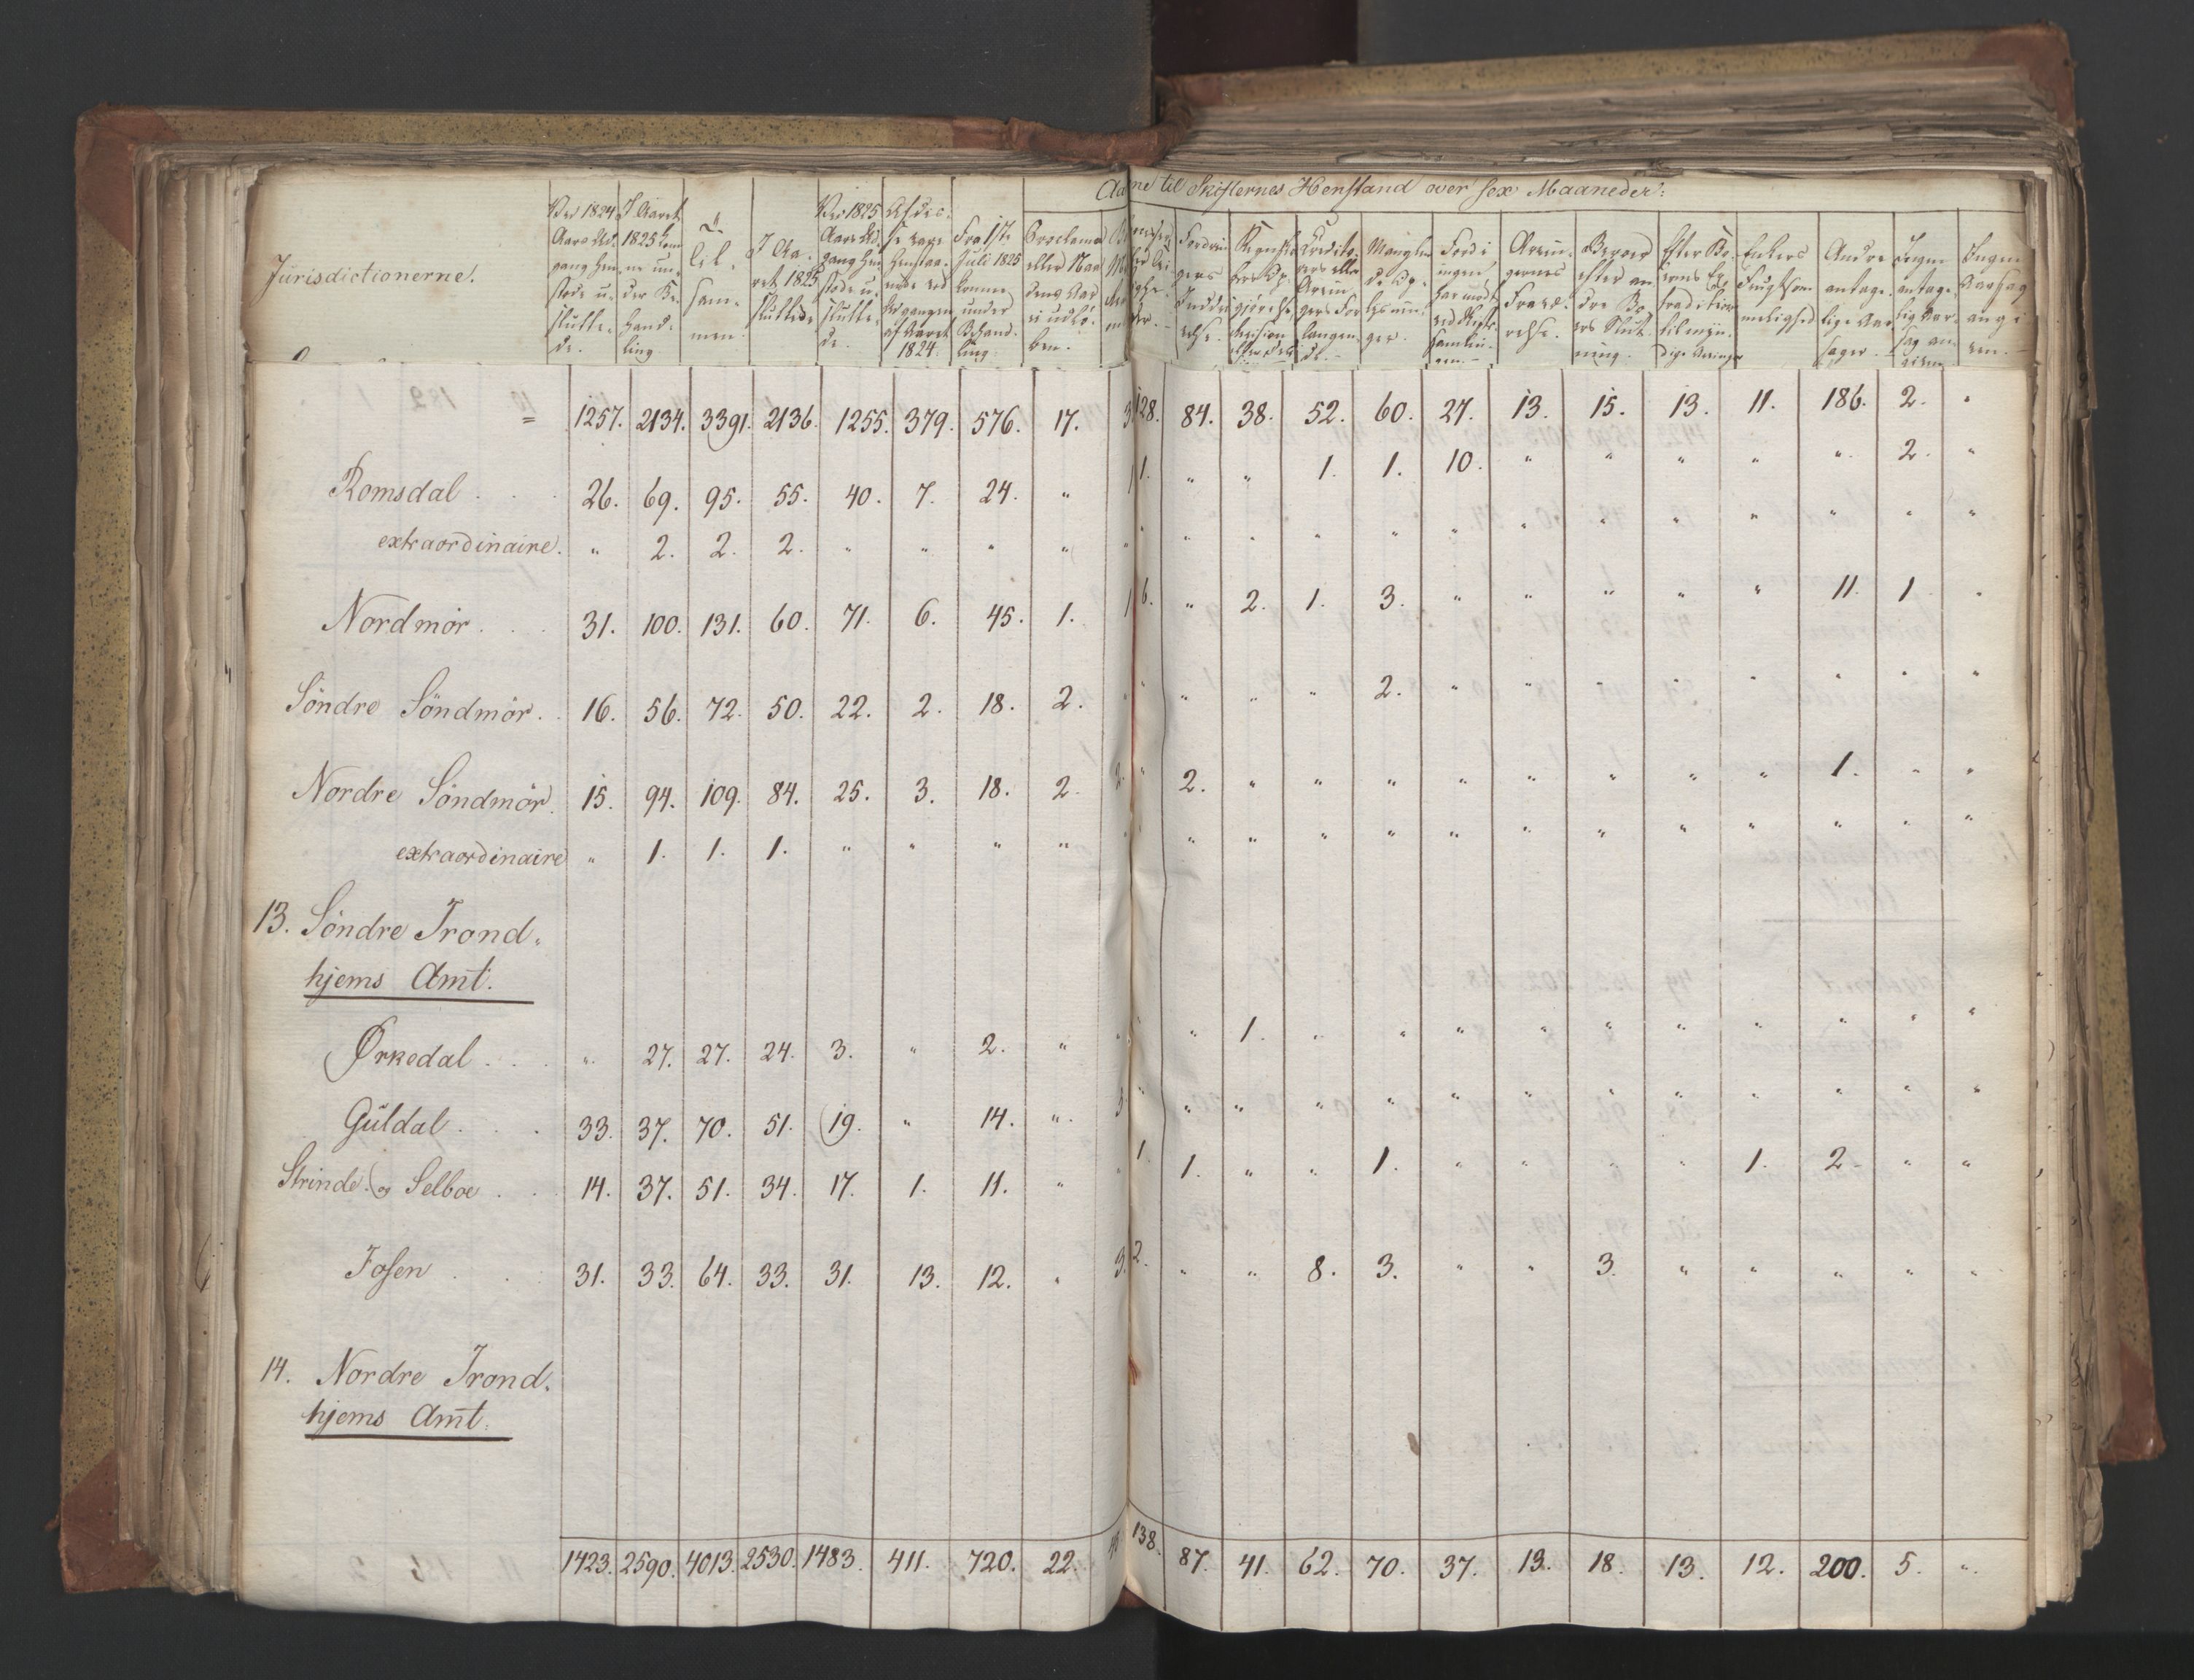 Aarne til Skifternes Henstand over sex Maaneder:
Jurisdictionerne.
Ved 1824 Aars Ud- gang hen- stode u- slutte- de.
I Aaret 1825 kom- ne un- der Be- hand- ling.
Til- sam- men.
I Aa- ret 1825 sluttede
Ved 1825 Aars Ud- gang hen- stode u- slutte- de.
Af dis- se have henstaa- ende ved Udgangen af Aaret 1824.
Fra 1ste Juli 1825 komne under Behand- ling.
Proclama eller
Fordrin- gers Inddri- velse.
Mangler
Fordi ingen har mødt ved Skifte- samlin- gen.
Arvin- gernes Fravæ- relse.
Beroer efter an- dre Bo- ers Slut- ning.
Enkers Frugtsom- melighed
Andre antage- lige Aar- sager.
Ingen antage- lig Aar- sag an- given
Ingen Aarsag angi- ven.
= 1257. 2134. 3391. 2136. 1255. 379. 576. 17. 128. 84. 38. 52. 60. 27. 13. 15. 13. 11. 186. 2. "
Romsdal . . . 26. 69. 95. 55. 40. 7. 24. " 1. " " 1. 1. 10. " " " " " 2. "
extraordinaire. " 2. 2. 2. " " " " " " " " " " " " " " " " "
Nordmör . . . 31. 100. 131. 60. 71. 6. 45. 1. 6. " 2. 1. 3. " " " " " 11. 1. "
Söndre Söndmör . . 16. 56. 72. 50. 22. 2. 18. 2. " " " " 2. " " " " " " " "
Nordre Söndmör. 15. 94. 109. 84. 25. 3. 18. 2. 2. " 2. " " " " " " " " 1. " "
extraordinaire " 1. 1. 1. " " " " " " " " " " " " " " " " "
13. Söndre Trond-
hjems Amt.
Ørkedal . . . " 27. 27. 24. 3. " 2. " " " 1. " " " " " " " " " "
Güldal . . . 33. 37. 70. 51. 19. " 14. " 3. " " " " " " " " " " " " "
Strinde og Selboe . . 14. 37. 51. 34. 17. 1. 11. " " 1. 1. " " 1. " " " " 1. 2. " "
Fosen . . . 31. 33. 64. 33. 31. 13. 12. " 3. 2. " " 8. 3. " " 3. " " " " "
14. Nordre Trond-
hjems Amt.
1423. 2590. 4013. 2530. 1483. 411. 720. 22. 138. 87. 41. 62. 70. 37. 13. 18. 13. 12. 200. 5. "